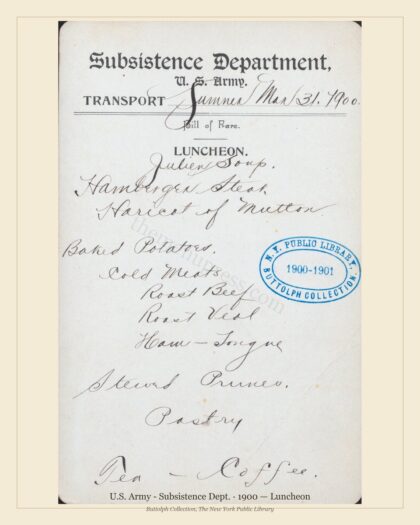 Subsistence Department,
U. S. Army.
TRANSPORT Sumner Mar 31. 1900.
Bill of Fare.
LUNCHEON.
Julien Soup.
Hamburger Steak
Haricot of Mutton
Baked Potatoes.
Cold Meats
Roast Beef
Roast Veal
Ham - Tongue
Stewed Prunes.
Pastry
Tea - Coffee.
N. Y. PUBLIC LIBRARY,
1900-1901
BUTTOLPH COLLECTION.
U.S. Army - Subsistence Dept. - 1900 — Luncheon
Buttolph Collection, The New York Public Library